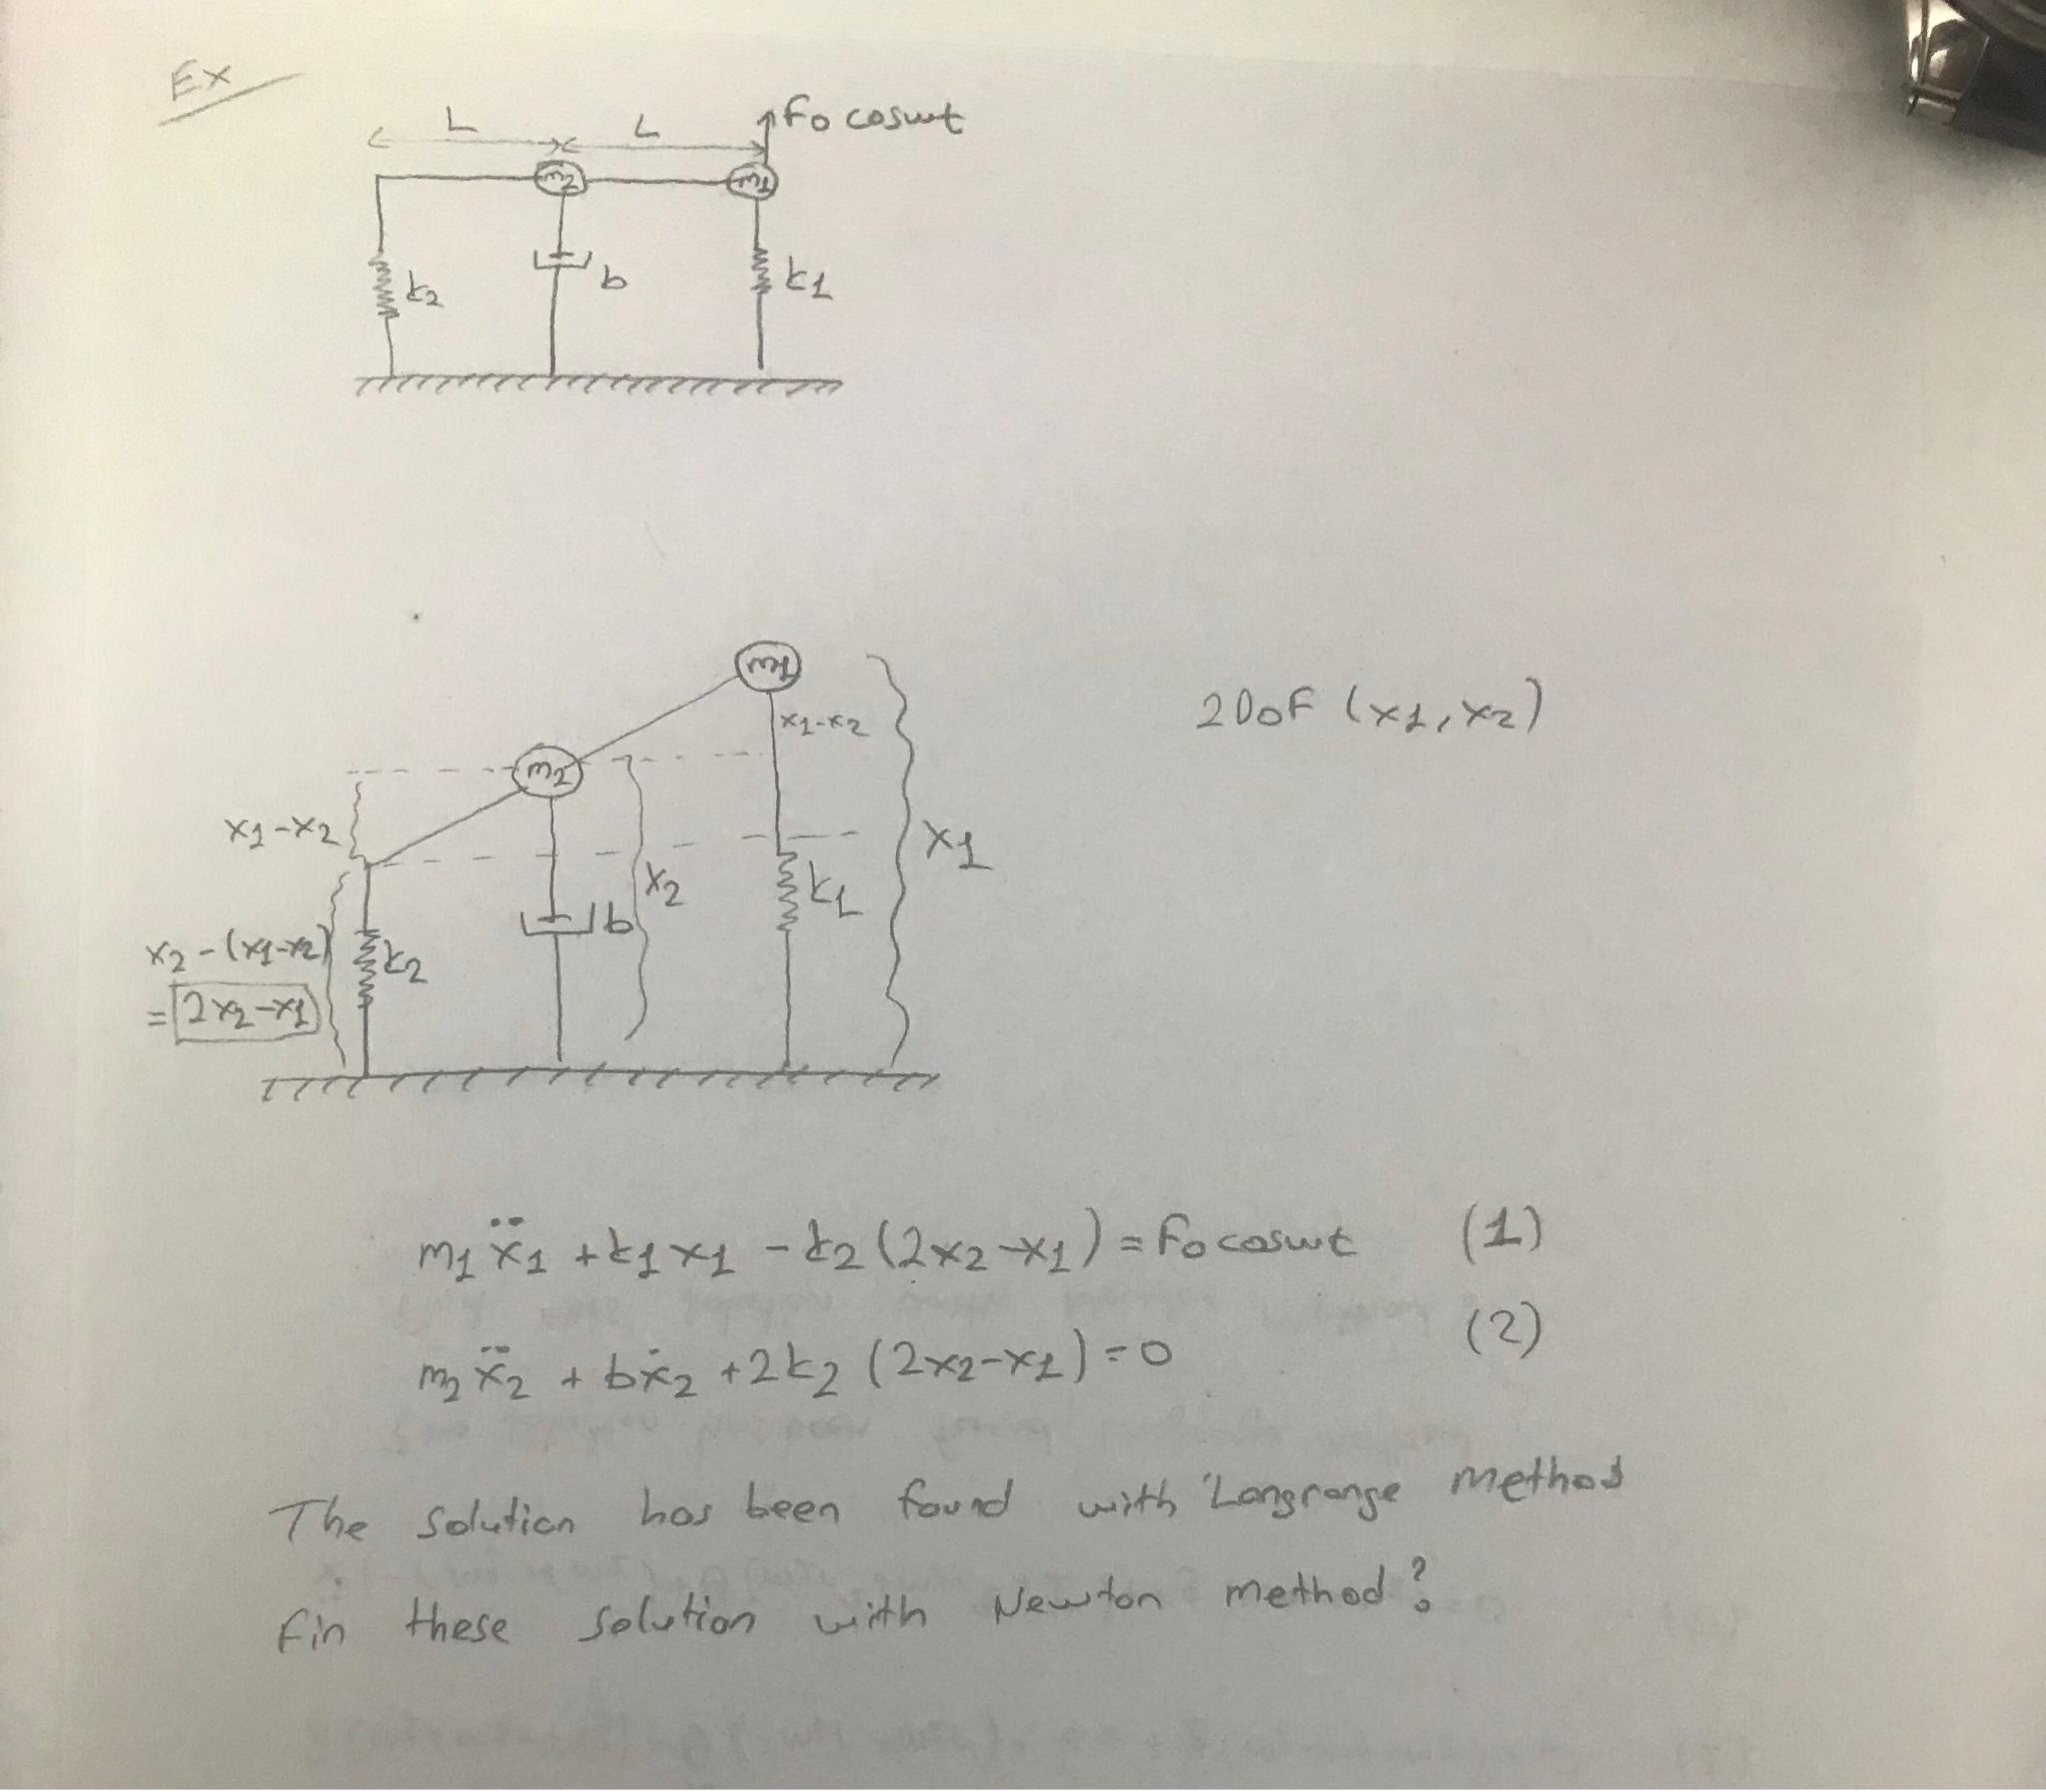 Ex
L L Fo coswt
m2 m1
k2 b k1
m1
x1-x2
2DoF (x1,x2)
m2
x1-x2
x1
x2 k1
b
x2-(x1-x2) k2
= 2x2-x1
m1ẍ1 + k1x1 - k2(2x2-x1) = Fo coswt (1)
m2ẍ2 + bẋ2 + 2k2(2x2-x1) = 0 (2)
The solution has been found with 'Langrange Method
fin these solution with Newton method?